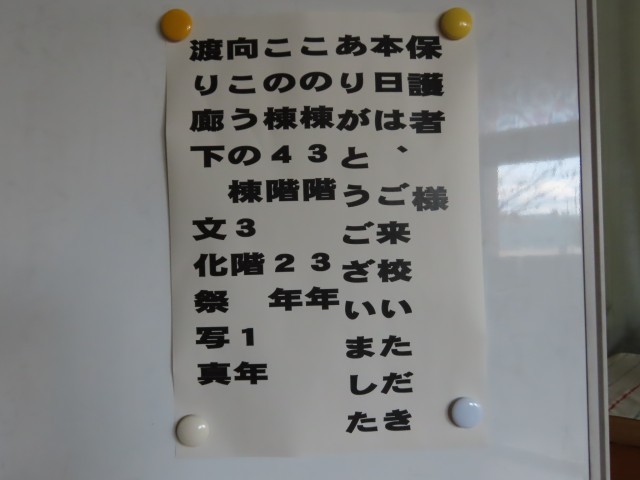 保護者 様
本日は、ご来校いただき
ありがとうございました
この棟3階 3年
この棟4階 2年
向こうの棟3階 1年
渡り廊下 文化祭写真